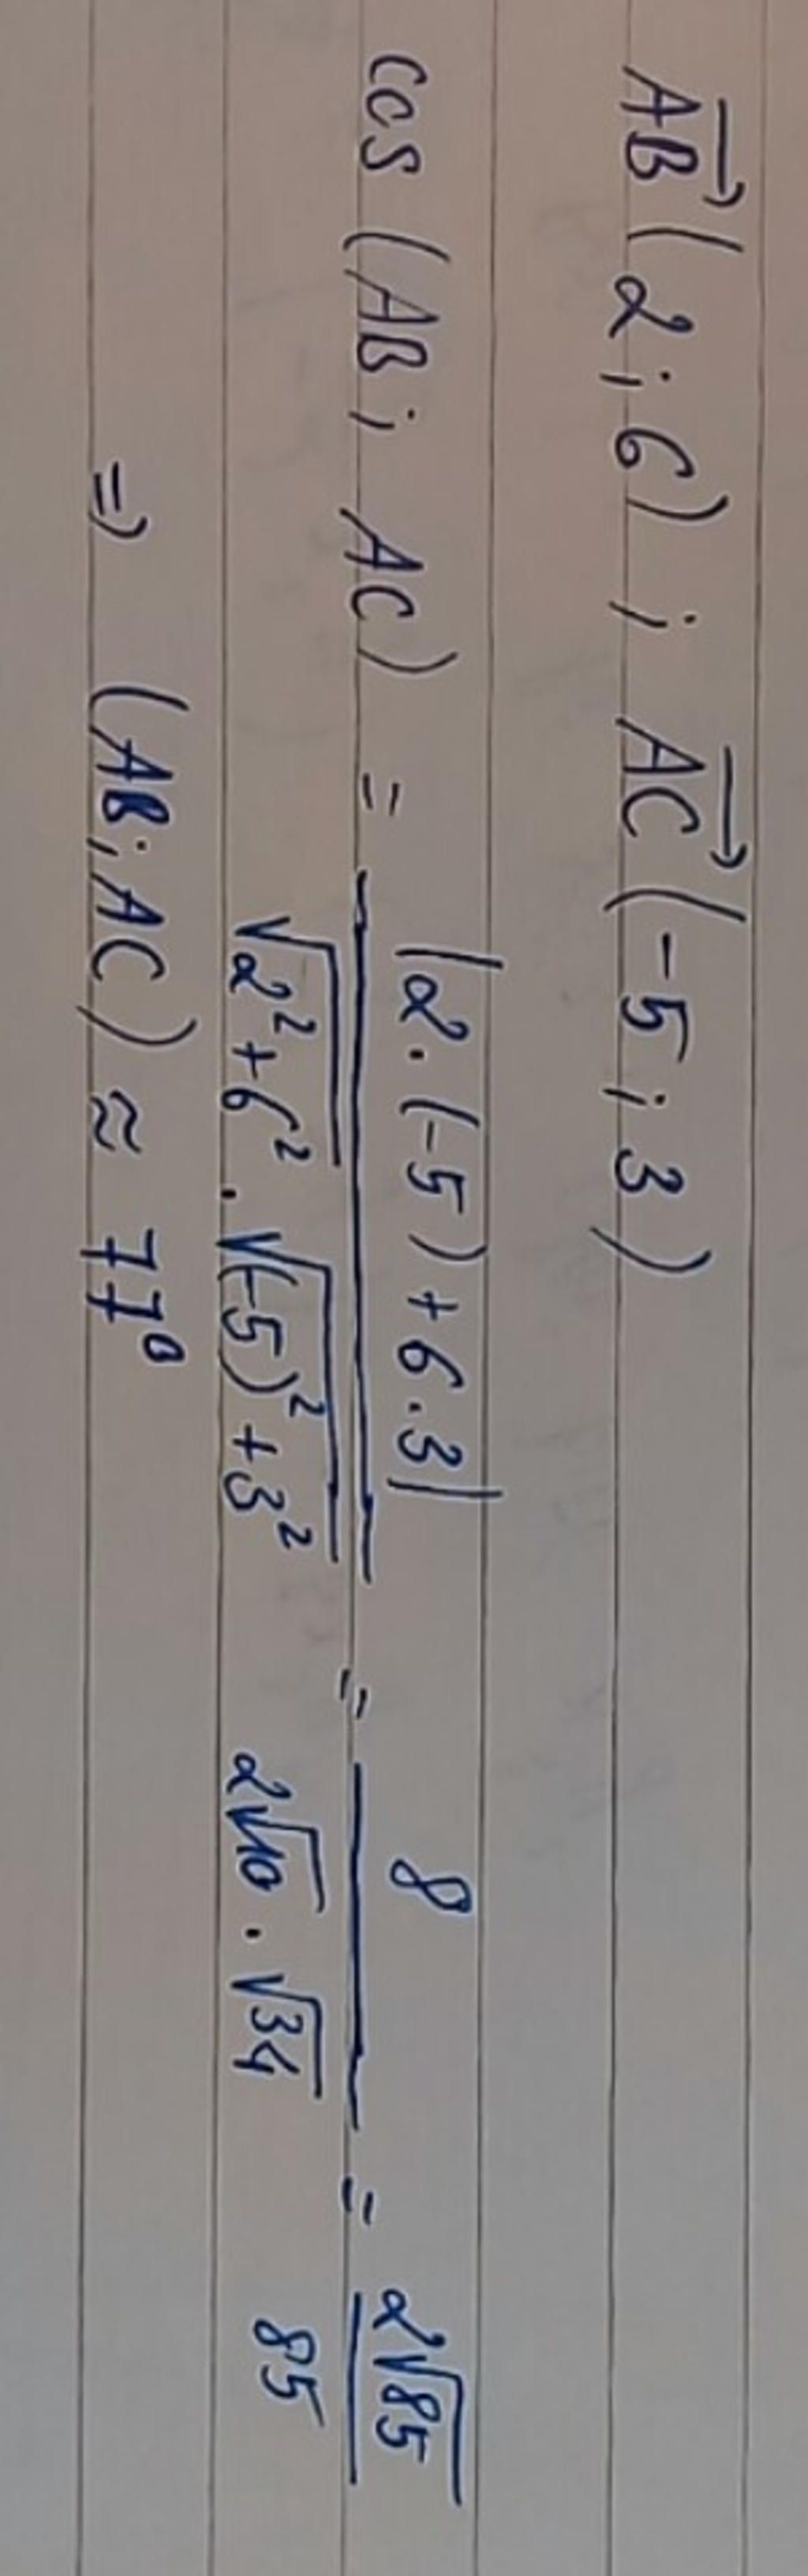 $\overrightarrow{AB}(2;6); \overrightarrow{AC}(-5;3)$
$\cos(AB; AC) = \frac{|2.(-5)+6.3|}{\sqrt{2^2+6^2}.\sqrt{(-5)^2+3^2}} = \frac{8}{2\sqrt{10}.\sqrt{34}} = \frac{2\sqrt{85}}{85}$
$\Rightarrow (AB;AC) \approx 77^0$